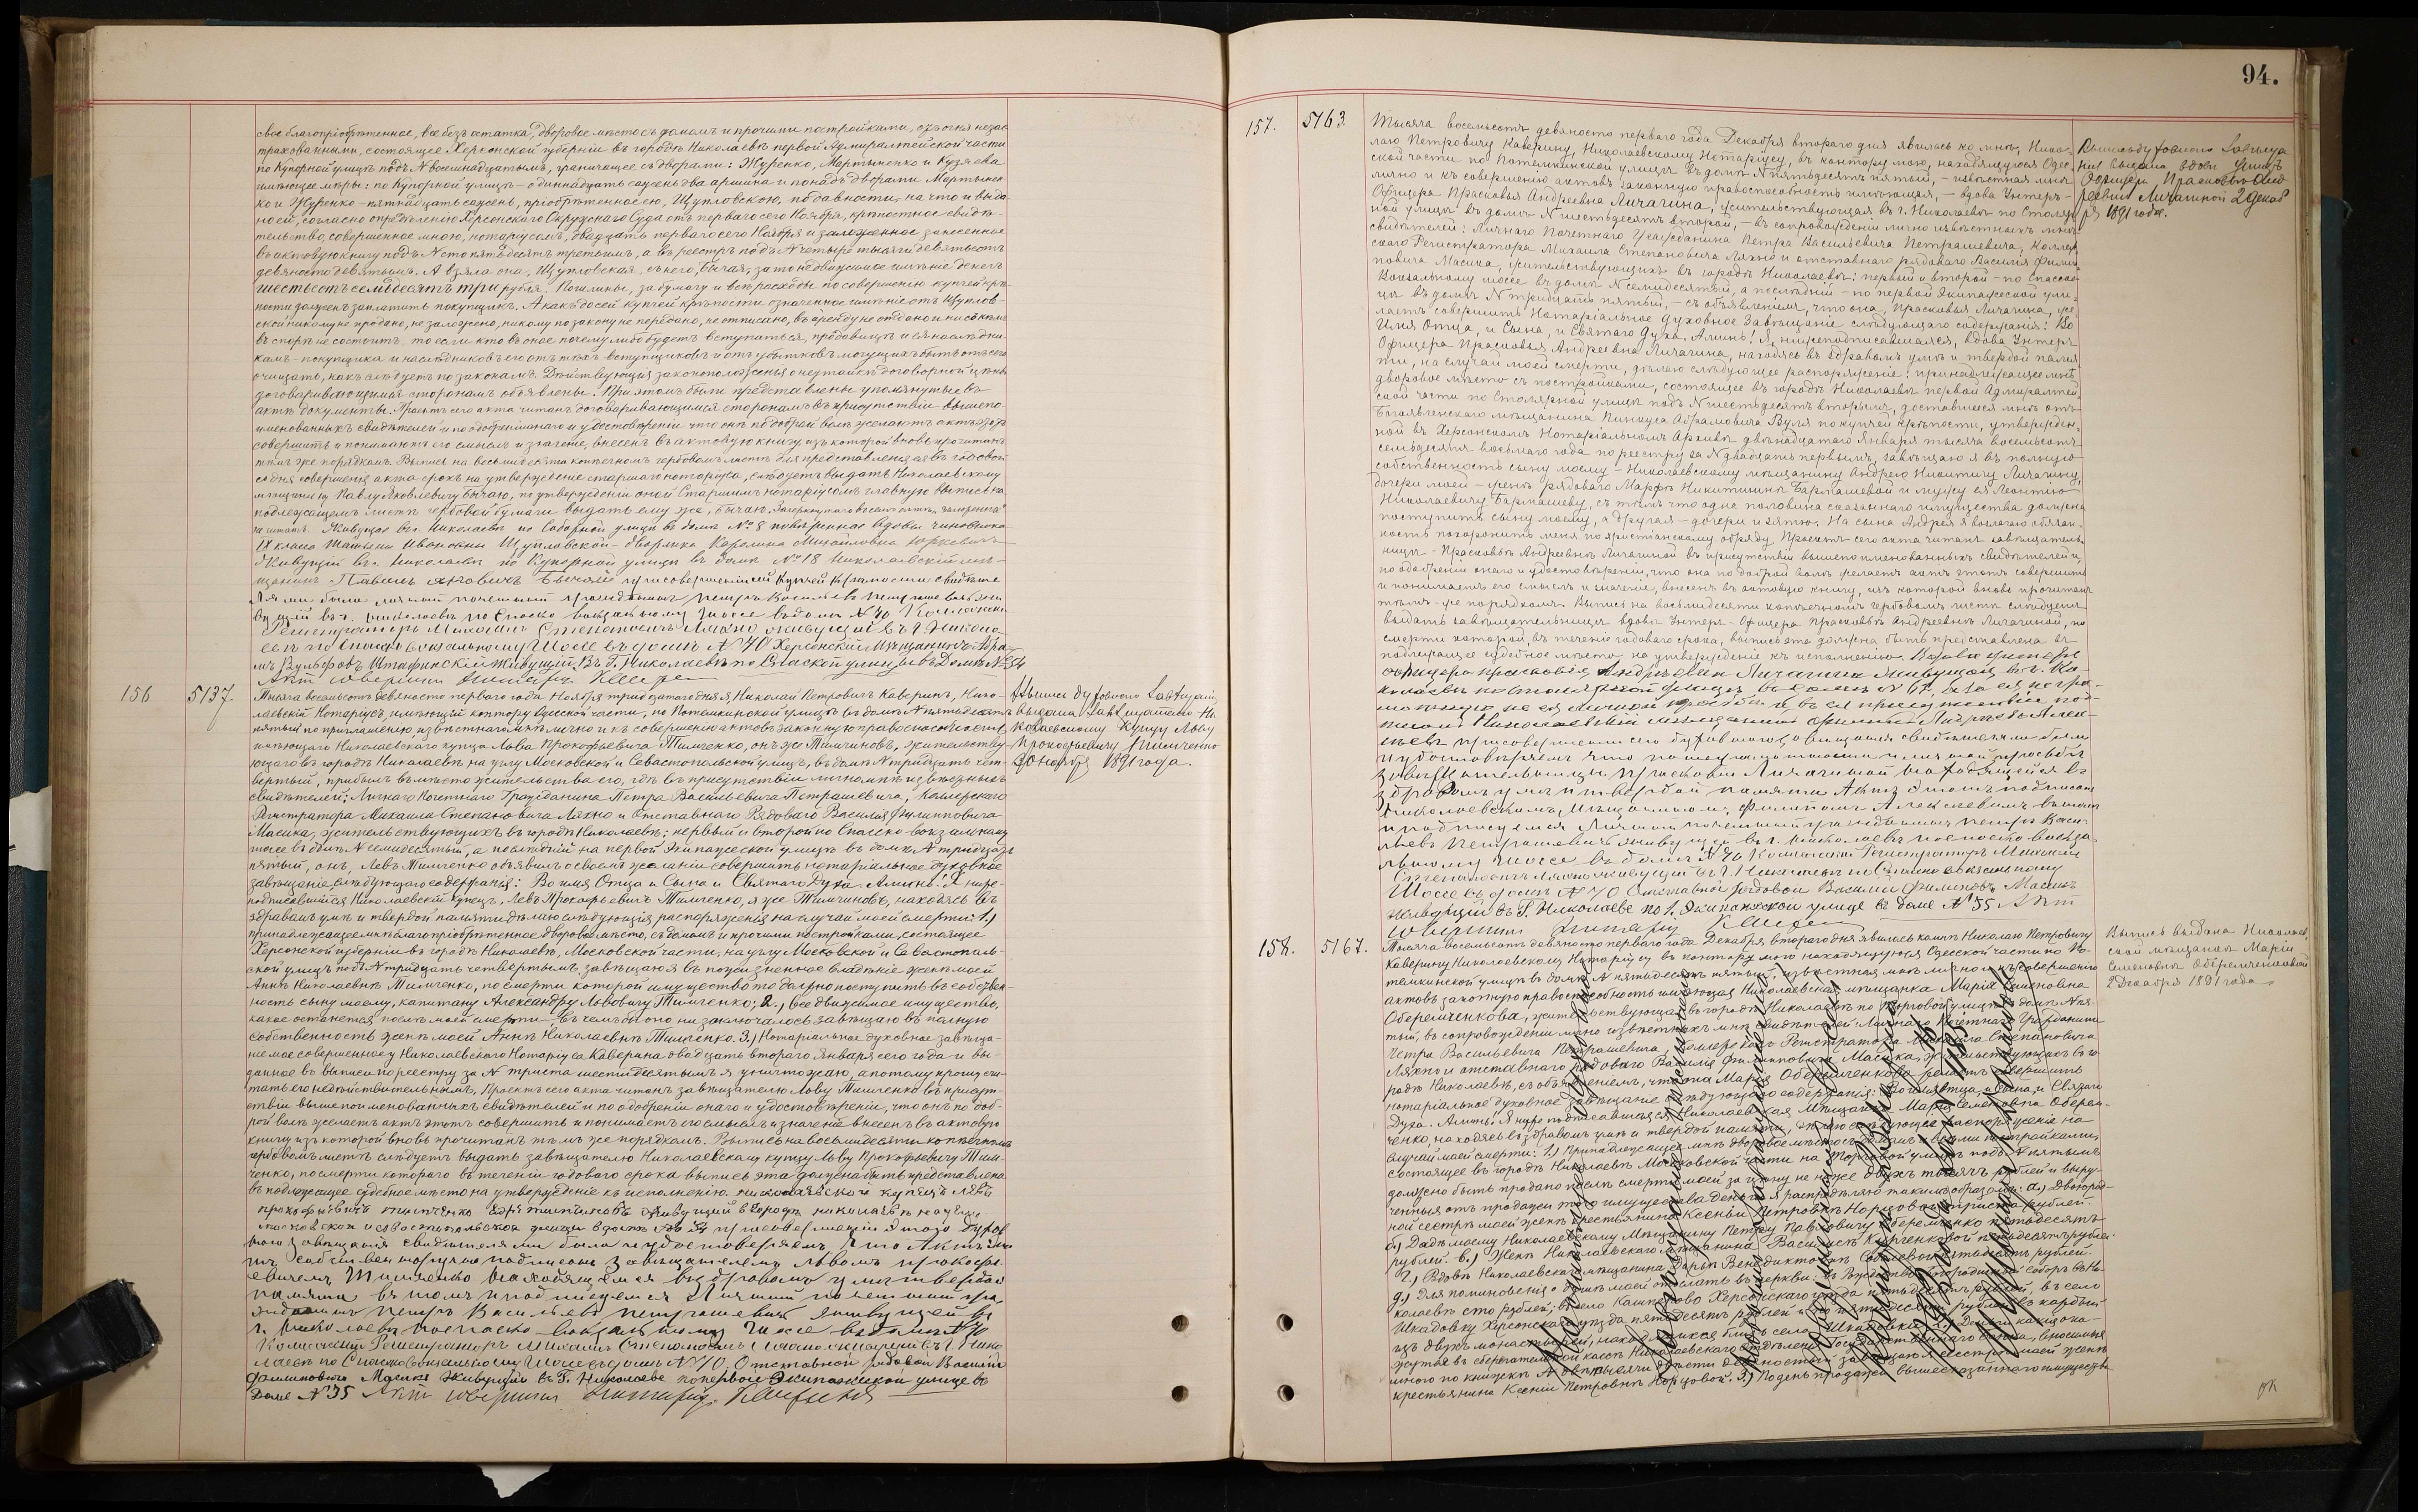 свое благопріобрѣтенное, все безъ остатка, дворовое мѣсто съ домомъ и прочими постройками,
состоящее Херсонской губерніи въ городѣ Николаевѣ первой Адмиралтейской части
по Купорной улицѣ подъ N восемнадцатымъ, граничащее съ дворами: Журенко, Мартыненко и Кузяева
имѣющее мѣры: по Купорной улицѣ – одиннадцать сажень два аршина и
ко и Журенко – пятнадцать сажень, пріобрѣтенное ею, Щупловскою, по давности, на что и выда-
но ей, согласно опредѣленію Херсонскаго Окружнаго Суда отъ перваго сего Ноября, крѣпостное свидѣ-
тельство, совершенное мною, нотаріусомъ, двадцать перваго сего Ноября и занесенное
въ актовую книгу подъ N сто пятьдесятъ третьимъ, а въ реестръ подъ N четыре тысячи девятьсотъ
девяносто девятымъ. А взяла она, Щупловская, съ него, Бычая, за то недвижимое имѣніе денегъ
шестьсотъ семьдесятъ три рубля. Пошлины, за бумагу и всѣ расходы по совершенію купчей крѣ-
пости долженъ заплатить покупщикъ. А какъ до сей купчей крѣпости означенное имѣніе отъ Щуплов-
ской никому не продано, не заложено, никому по закону не передано, не отписано, въ аренду не отдано и ни съ кѣмъ
въ спорѣ не состоитъ, то если кто въ оное почему либо будетъ вступаться, продавицѣ и ея наслѣдни-
камъ – покупщика и наслѣдниковъ его отъ тѣхъ вступщиковъ и отъ убытковъ могущихъ быть отъ сего
очищать, какъ слѣдуетъ по законамъ. Дѣйствующія законоположенія о неутайкѣ договорной цѣны
договаривающимся сторонамъ объявлены. При этомъ были представлены упомянутые въ
актѣ документы. Проектъ сего акта читанъ договаривающимся сторонамъ въ присутствіи вышепо-
именованныхъ свидѣтелей и по одобреніи онаго и удостовѣреніи что онѣ по доброй волѣ желаютъ актъ этотъ
совершить и понимаютъ его смыслъ и значеніе, внесенъ въ актовую книгу изъ которой вновь прочитанъ
тѣмъ же порядкомъ. Выпись на восьмидесяти копѣечномъ гербовомъ листѣ для представленія ея въ годовой
со дня совершенія акта срокъ на утвержденіе старшаго нотаріуса, слѣдуетъ выдать Николаевскому
мѣщанину Павлу Яковлевичу Бычаю, по утвержденіи оной Старшимъ нотаріусомъ главную выпись на
подлежащемъ листѣ гербовой бумаги выдать ему же, Бычаю.
Живущая въ г. Николаевѣ по Соборной улицѣ въ домѣ № 8 повѣренная вдовы чиновника
IX класса Татьяны Ивановны Щупловской – дворянка Каролина Михайловна Юркевичъ
Живущій въ г. Николаевѣ по Купорной улицѣ въ домѣ № 18 Николаевскій мѣ-
щанинъ Павелъ Яковлевъ Бычай при совершеніи сей купчей крѣпости свидѣте-
лями были личный почетный гражданинъ Петръ Васильевъ Петрашевичъ жи-
вущій въ г. Николаевѣ по Спаско вокзальному шоссе въ домѣ N 70 Коллежскій
Регистраторъ Михаилъ Степановичъ Ляхно живущій въ г. Никола-
евѣ по Спаско вокзальному шоссе въ домѣ N 70 Херсонскій Мѣщанинъ Абра-
мъ Вульфовъ Живущій въ Г. Николаевѣ по Спаской улицѣ въ Домѣ № 54
Актъ совершилъ Нотаріусъ
156 5137.
Тысяча восемьсотъ девяносто перваго года Ноября тридцатаго дня я, Николай Петровичъ Каверинъ, Нико-
лаевскій Нотаріусъ, имѣющій контору Одесской части, по Потемкинской улицѣ въ домѣ N пятьдесятъ
пятый по приглашенію, извѣстнаго мнѣ лично и къ совершенію актовъ законную правоспособность
имѣющаго Николаевскаго купца Льва Прокофьевича Тимченко, онъ же Тимчиновъ, жительству-
ющаго въ городѣ Николаевѣ на углу Московской и Севастопольской улицъ, въ домѣ N тридцать чет-
вертый, прибылъ въ мѣсто жительства его, гдѣ въ присутствіи лично мнѣ извѣстныхъ
свидѣтелей: Личнаго Почетнаго Гражданина Петра Васильевича Петрашевича, Коллежскаго
Регистратора Михаила Степановича Ляхно и Отставнаго Рядоваго Василія Филипповича
Масика, жительствующихъ въ городѣ Николаевѣ: первый и второй по Спаско-вокзальному
шоссе въ домѣ N семидесятый, а послѣдній на первой Экипажеской улицѣ въ домѣ N тридцать
пятый, онъ, Левъ Тимченко объявилъ о своемъ желаніи совершить нотаріальное духовное
завѣщаніе слѣдующаго содержанія: Во имя Отца и Сына и Святаго Духа. Аминь. Я ниже-
подписавшійся Николаевскій Купецъ, Левъ Прокофьевичъ Тимченко, я же Тимчиновъ, находясь въ
здравомъ умѣ и твердой памяти дѣлаю слѣдующія распоряженія на случай моей смерти: 1.)
принадлежащее мнѣ благопріобрѣтенное дворовое мѣсто, съ домомъ и прочими постройками, состоящее
Херсонской губерніи въ городѣ Николаевѣ, Московской части, на углу Московской и Севастополь-
ской улицъ подъ N тридцать четвертымъ, завѣщаю я въ пожизненное владѣніе женѣ моей
Аннѣ Николаевнѣ Тимченко, по смерти которой имущество то должно поступить въ собствен-
ность сыну моему, капитану Александру Львовичу Тимченко; 2.) все движимое имущество,
какое останется послѣ моей смерти въ чемъ бы оно ни заключалось завѣщаю въ полную
собственность женѣ моей Аннѣ Николаевнѣ Тимченко. 3.) Нотаріальное духовное завѣща-
ніе мое совершенное у Николаевскаго Нотаріуса Каверина двадцать втораго Января сего года и вы-
данное въ выписи по реестру за N триста шестидесятымъ я уничтожаю, а потому прошу счи-
тать его недѣйствительнымъ. Проектъ сего акта читанъ завѣщателю Льву Тимченко въ присут-
ствіи вышепоименованныхъ свидѣтелей и по одобреніи онаго и удостовѣреніи, что онъ по доб-
рой волѣ желаетъ актъ этотъ совершить и понимаетъ его смыслъ и значеніе внесенъ въ актовую
книгу изъ которой вновь прочитанъ тѣмъ же порядкомъ. Выпись на восьмидесяти копѣечномъ
гербовомъ листѣ слѣдуетъ выдать завѣщателю Николаевскому купцу Льву Прокофьевичу Тим-
ченко, по смерти котораго въ теченіи годоваго срока выпись эта должна быть представлена
въ подлежащее судебное мѣсто на утвержденіе къ исполненію. Николаевской купецъ Левъ
прокофьевичъ тимченко онъ же тимчиновъ живущій въ городѣ николаевѣ на углу
московской и севостопольской улицы въ домѣ № 34 при совершеніи этого духов-
наго завѣщанія свидѣтелями были и удостовѣряемъ что Актъ этотъ
собственноручно подписанъ завѣщателемъ Львомъ Прокофь-
евичемъ Тимченко находящемся въ здравомъ умѣ и твердой
памяти въ томъ и подписуемся Личный почетный гра-
жданинъ Петръ Васильевъ Петрашевичъ живущій въ
г. Николаевѣ по Спаско вокзальному шоссе въ домѣ N 70
Коллежскій Регистраторъ Михаилъ Степановичъ Ляхно живущій въ г. Нико-
лаевѣ по Спаско вокзальному Шоссе въ домѣ N 70, Отставной рядовой Василій
Филиповичъ Масикъ Живущій въ Г. Николаеве по первой Экипажеской улице въ
доме N 35 Актъ совершилъ Нотаріусъ Каверинъ
Выпись духовнаго завѣщанія
выдана завѣщателю Ни-
колаевскому Купцу Льву
Прокофьевичу Тимченко
30 ноября 1891 года.
94.
157. 5163.
Тысяча восемьсотъ девяносто перваго года Декабря втораго дня явилась ко мнѣ, Нико-
лаю Петровичу Каверину, Николаевскому Нотаріусу, въ контору мою, находящуюся Одес-
ской части по Потемкинской улицѣ въ домѣ N пятьдесятъ пятый, – извѣстная мнѣ
лично и къ совершенію актовъ законную правоспособность имѣющая, – вдова Унтеръ-
Офицера Прасковья Андреевна Личагина, жительствующая въ г. Николаевѣ по Столяр-
ной улицѣ въ домѣ N шестьдесятъ второй, – въ сопровожденіи лично извѣстныхъ мнѣ
свидѣтелей: Личнаго Почетнаго Гражданина Петра Васильевича Петрашевича, Коллеж-
скаго Регистратора Михаила Степановича Ляхно и отставнаго рядоваго Василія Филип-
повича Масика, жительствующихъ въ городѣ Николаевѣ: первый и второй – по Спаско-
Вокзальному шоссе въ домѣ N семидесятый, а послѣдній – по первой Экипажеской ули-
цѣ въ домѣ N тридцать пятый, – съ объявленіемъ, что она, Прасковья Личагина, же-
лаетъ совершить Нотаріальное Духовное Завѣщаніе слѣдующаго содержанія: Во
Имя Отца, и Сына, и Святаго Духа. Аминь! Я, нижеподписавшаяся, вдова Унтеръ
Офицера Прасковья Андреевна Личагина, находясь въ здравомъ умѣ и твердой памя-
ти, на случай моей смерти, дѣлаю слѣдующее распоряженіе: принадлежащее мнѣ
дворовое мѣсто съ постройками, состоящее въ городѣ Николаевѣ первой Адмиралтей-
ской части по Столярной улицѣ подъ N шестьдесятъ вторымъ, доставшееся мнѣ отъ
Богоявленскаго мѣщанина Пинкуса Абрамовича Вуля по купчей крѣпости, утвержден-
ной въ Херсонскомъ Нотаріальномъ Архивѣ двѣнадцатаго Января тысяча восемьсотъ
семьдесятъ восьмаго года по реестру за N двадцать первымъ, завѣщаю я въ полную
собственность сыну моему – Николаевскому мѣщанину Андрею Никитичу Личагину,
дочери моей – женѣ рядоваго Марфѣ Никитишнѣ Бармашевой и мужу ея Леонтію
Николаевичу Бармашеву, съ тѣмъ что одна половина сказаннаго имущества должна
поступить сыну моему, а другая – дочери и зятю. На сына Андрея я возлагаю обязан-
ность похоронить меня по христіанскому обряду. Проектъ сего акта читанъ завѣщатель-
ницѣ – Прасковьѣ Андреевнѣ Личагиной въ присутствіи вышепоименованныхъ свидѣтелей и,
по одобреніи онаго и удостовѣреніи, что она по доброй волѣ желаетъ актъ этотъ совершить
и понимаетъ его смыслъ и значеніе, внесенъ въ актовую книгу, изъ которой вновь прочитанъ
тѣмъ-же порядкомъ. Выпись на восьмидесяти копѣечномъ гербовомъ листѣ слѣдуетъ
выдать завѣщательницѣ вдовѣ Унтеръ-Офицера Прасковьѣ Андреевнѣ Личагиной, по
смерти которой, въ теченіе годоваго срока, выпись эта должна быть представлена въ
подлежащее судебное мѣсто на утвержденіе къ исполненію. Вдова Унтеръ
офицера прасковія Андрѣевна Личагина живущая въ г. Ни-
колаевѣ по столярной улицѣ въ домѣ N 62, а за ея негра-
мотную по ея личной просьбѣ и въ ея присутствіи под-
писалъ Николаевскій мѣщанинъ
при совершеніи сего духовнаго завѣщанія свидѣтелями были
и удостовѣряемъ что по неграмотности и личной просьбѣ
завѣщательницы Прасковіи Личагиной находящейся въ
здравомъ умѣ и твердой памяти Актъ этотъ подписанъ
Николаевскимъ Мѣщаниномъ въ томъ
и подписуемся Личный почетный гражданинъ Петръ Васи-
льевъ Петрашевичъ живущій въ г. Николаевѣ по спаско вокза-
льному шоссе въ домѣ N 70 Коллежскій Регистраторъ Михаилъ
Степановичъ Ляхно живущій въ г. Николаевѣ по Спаско вокзальному
Шоссе въ домѣ N 70 Отставной рядовой Василій Филиповъ Масикъ
живущій въ Г. Николаеве по 1. Экипажеской улице въ доме N 35 Актъ
совершилъ Нотаріусъ
Выпись духовнаго завѣща-
нія выдана вдовѣ Унтеръ
Офицера, Прасковьѣ Анд-
реевнѣ Личагиной 2 декаб-
ря 1891 года.
158. 5167.
Тысяча восемьсотъ девяносто перваго года Декабря втораго дня явилась ко мнѣ Николаю Петровичу
Каверину Николаевскому Нотаріусу въ контору мою находящуюся Одесской части по По-
темкинской улицѣ въ домѣ N пятьдесятъ пятый, извѣстная мнѣ лично и къ совершенію
актовъ законную правоспособность имѣющая Николаевская мѣщанка Марія Семеновна
Оберемченкова, жительствующая въ городѣ Николаевѣ по Торговой улицѣ въ домѣ N пя-
тый, въ сопровожденіи лично извѣстныхъ мнѣ свидѣтелей Личнаго Почетнаго Гражданина
Петра Васильевича Петрашевича, Коллежскаго Регистратора Михаила Степановича
Ляхно и отставнаго рядоваго Василія Филипповича Масика, жительствующихъ въ го-
родѣ Николаевѣ, съ объявленіемъ, что она Марія Оберемченкова желаетъ совершить
нотаріальное духовное завѣщаніе слѣдующаго содержанія: Во имя Отца, и Сына, и Святаго
Духа. Аминь. Я нижеподписавшаяся Николаевская Мѣщанка Марія Семеновна Оберем-
ченко, находясь въ здравомъ умѣ и твердой памяти, дѣлаю слѣдующее распоряженіе на
случай моей смерти: 1.) Принадлежащее мнѣ дворовое мѣсто съ домомъ и всѣми постройками,
состоящее въ городѣ Николаевѣ Московской части на Торговой улицѣ подъ N пятымъ
должно быть продано послѣ смерти моей за цѣну не ниже двухъ тысячъ рублей и выру-
ченныя отъ продажи того имущества деньги я распредѣляю такимъ образомъ: а.) Двоюрод-
ной сестрѣ моей женѣ крестьянина Ксеніи Петровнѣ Норцовой триста рублей.
б.) Дядѣ моему Николаевскому Мѣщанину Петру Павловичу Оберемченко пятьдесятъ
рублей. в.) Женѣ Николаевскаго мѣщанина Василисѣ Кирченковой пятьдесятъ рублей.
г.) Вдовѣ Николаевскаго мѣщанина Дарьѣ Венедиктовнѣ пятьдесятъ рублей.
д.) Для поминовенія о душѣ моей отослать въ церкви: въ Рождество Богородичный соборъ въ Ни-
колаевѣ сто рублей; въ село Кашперово Херсонскаго уѣзда пятьдесятъ рублей, въ село
Шкадовку Херсонскаго уѣзда пятьдесятъ рублей и по пятидесяти рублей въ каждый
изъ двухъ монастырей, находящихся близъ села Шкадовки. 2.) Деньги какія ока-
жутся въ сберегательной кассѣ Николаевскаго отдѣленія Государственнаго банка, вносимыя
мною по книжкѣ N двѣ тысячи двѣсти девяностый завѣщаю сестрѣ моей женѣ
крестьянина Ксеніи Петровнѣ Норцовой. 3.) По день продажи вышесказаннаго имуществ
Выпись выдана Николаев-
ской мѣщанкѣ Маріи
Семеновнѣ Оберемченковой
2 Декабря 1891 года